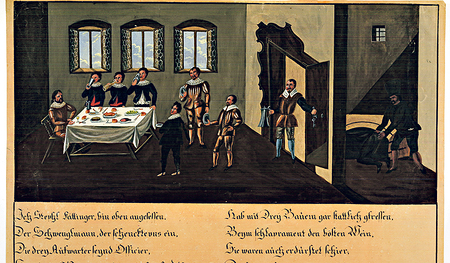 Ich Stephl Fattinger, bin oben angesessen.
Der Schwenglmann, der schenckt uns ein.
Die drey Aufwarter seynd Officier,
Hab mit Drey Bauern gar stattlich gfressen.
Beym schlaprament den besten Wein,
Sie waren auch erdürstet schier,